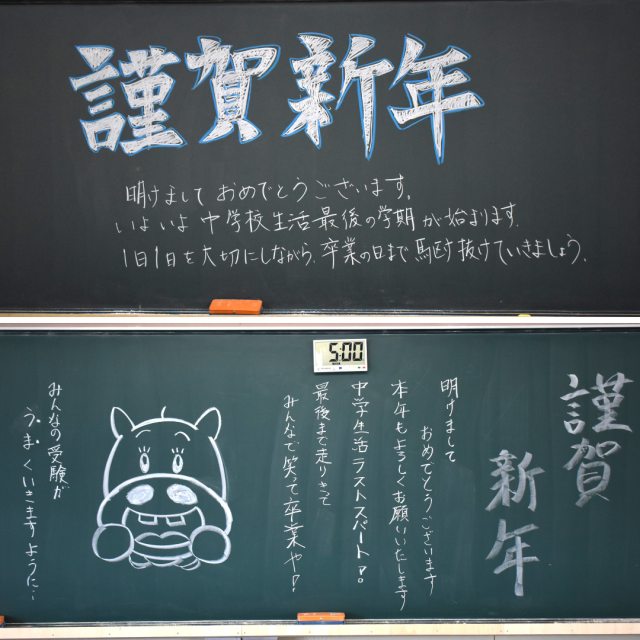 謹賀新年
明けまして おめでとうございます。
いよいよ 中学校生活 最後の学期 が始まります
1日1日を大切にしながら、卒業の日まで 馬駆け抜けていきましょう。
5:00
謹賀
新年
明けまして
おめでとうございます
本年もよろしくお願いいたします
中学生活ラストスパート!。
最後まで走りきって
みんなで笑って卒業や!
みんなの受験が
う・ま・くいきますように…